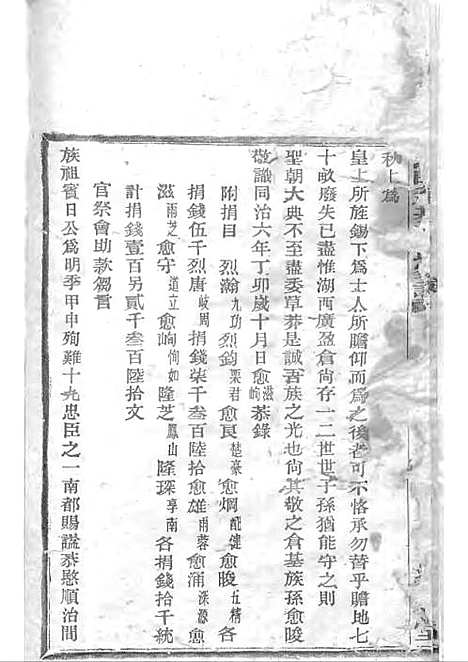 秋上爲
皇上所旌錫下爲士人所瞻仰而爲之後者可不恪承勿替乎贍地七
十畝廢失已盡惟湖西廣盈倉尙存一二世世子孫猶能守之則
聖朝大典不至盡委草莽是誠吾族之光也尙其敬之倉基族孫愈陵
敬識同治六年丁卯歲十月日愈滋峋恭錄
附捐目 烈瀚九功烈鈞栗君愈良楚豪愈烱配健愈陵五精各
捐錢伍千烈唐岐周捐錢柒千叁百陸拾愈雄雨蓉愈涌深源愈
滋雨芝愈守道立愈峋恂如隆芝鳳山隆琛享南各捐錢拾千統
計捐錢壹百另貳千叁百陸拾文
官祭會助款芻言
族祖賓日公爲明季甲申殉難十九忠臣之一南都賜謚恭愍順治間